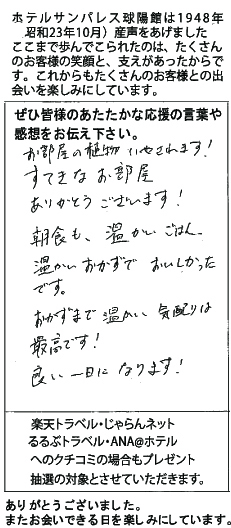 ホテルサンパレス球陽館は1948年
昭和23年10月）産声をあげました
ここまで歩んでこられたのは、たくさん
のお客様の笑顔と、支えがあったからで
す。これからもたくさんのお客様との出
会いを楽しみにしています。
ぜひ皆様のあたたかな応援の言葉や
感想をお伝え下さい。
お部屋の植物 いやされます!
すてきなお部屋
ありがとうございます!
朝食も、温かいごはん、
温かいおかずで おいしかった
です。
おかずまで温かい 気配りは
最高です!
良い一日になります!
楽天トラベル・じゃらんネット
るるぶトラベル・ANA@ホテル
へのクチコミの場合もプレゼント
抽選の対象とさせていただきます。
ありがとうございました。
またお会いできる日を楽しみにしています。